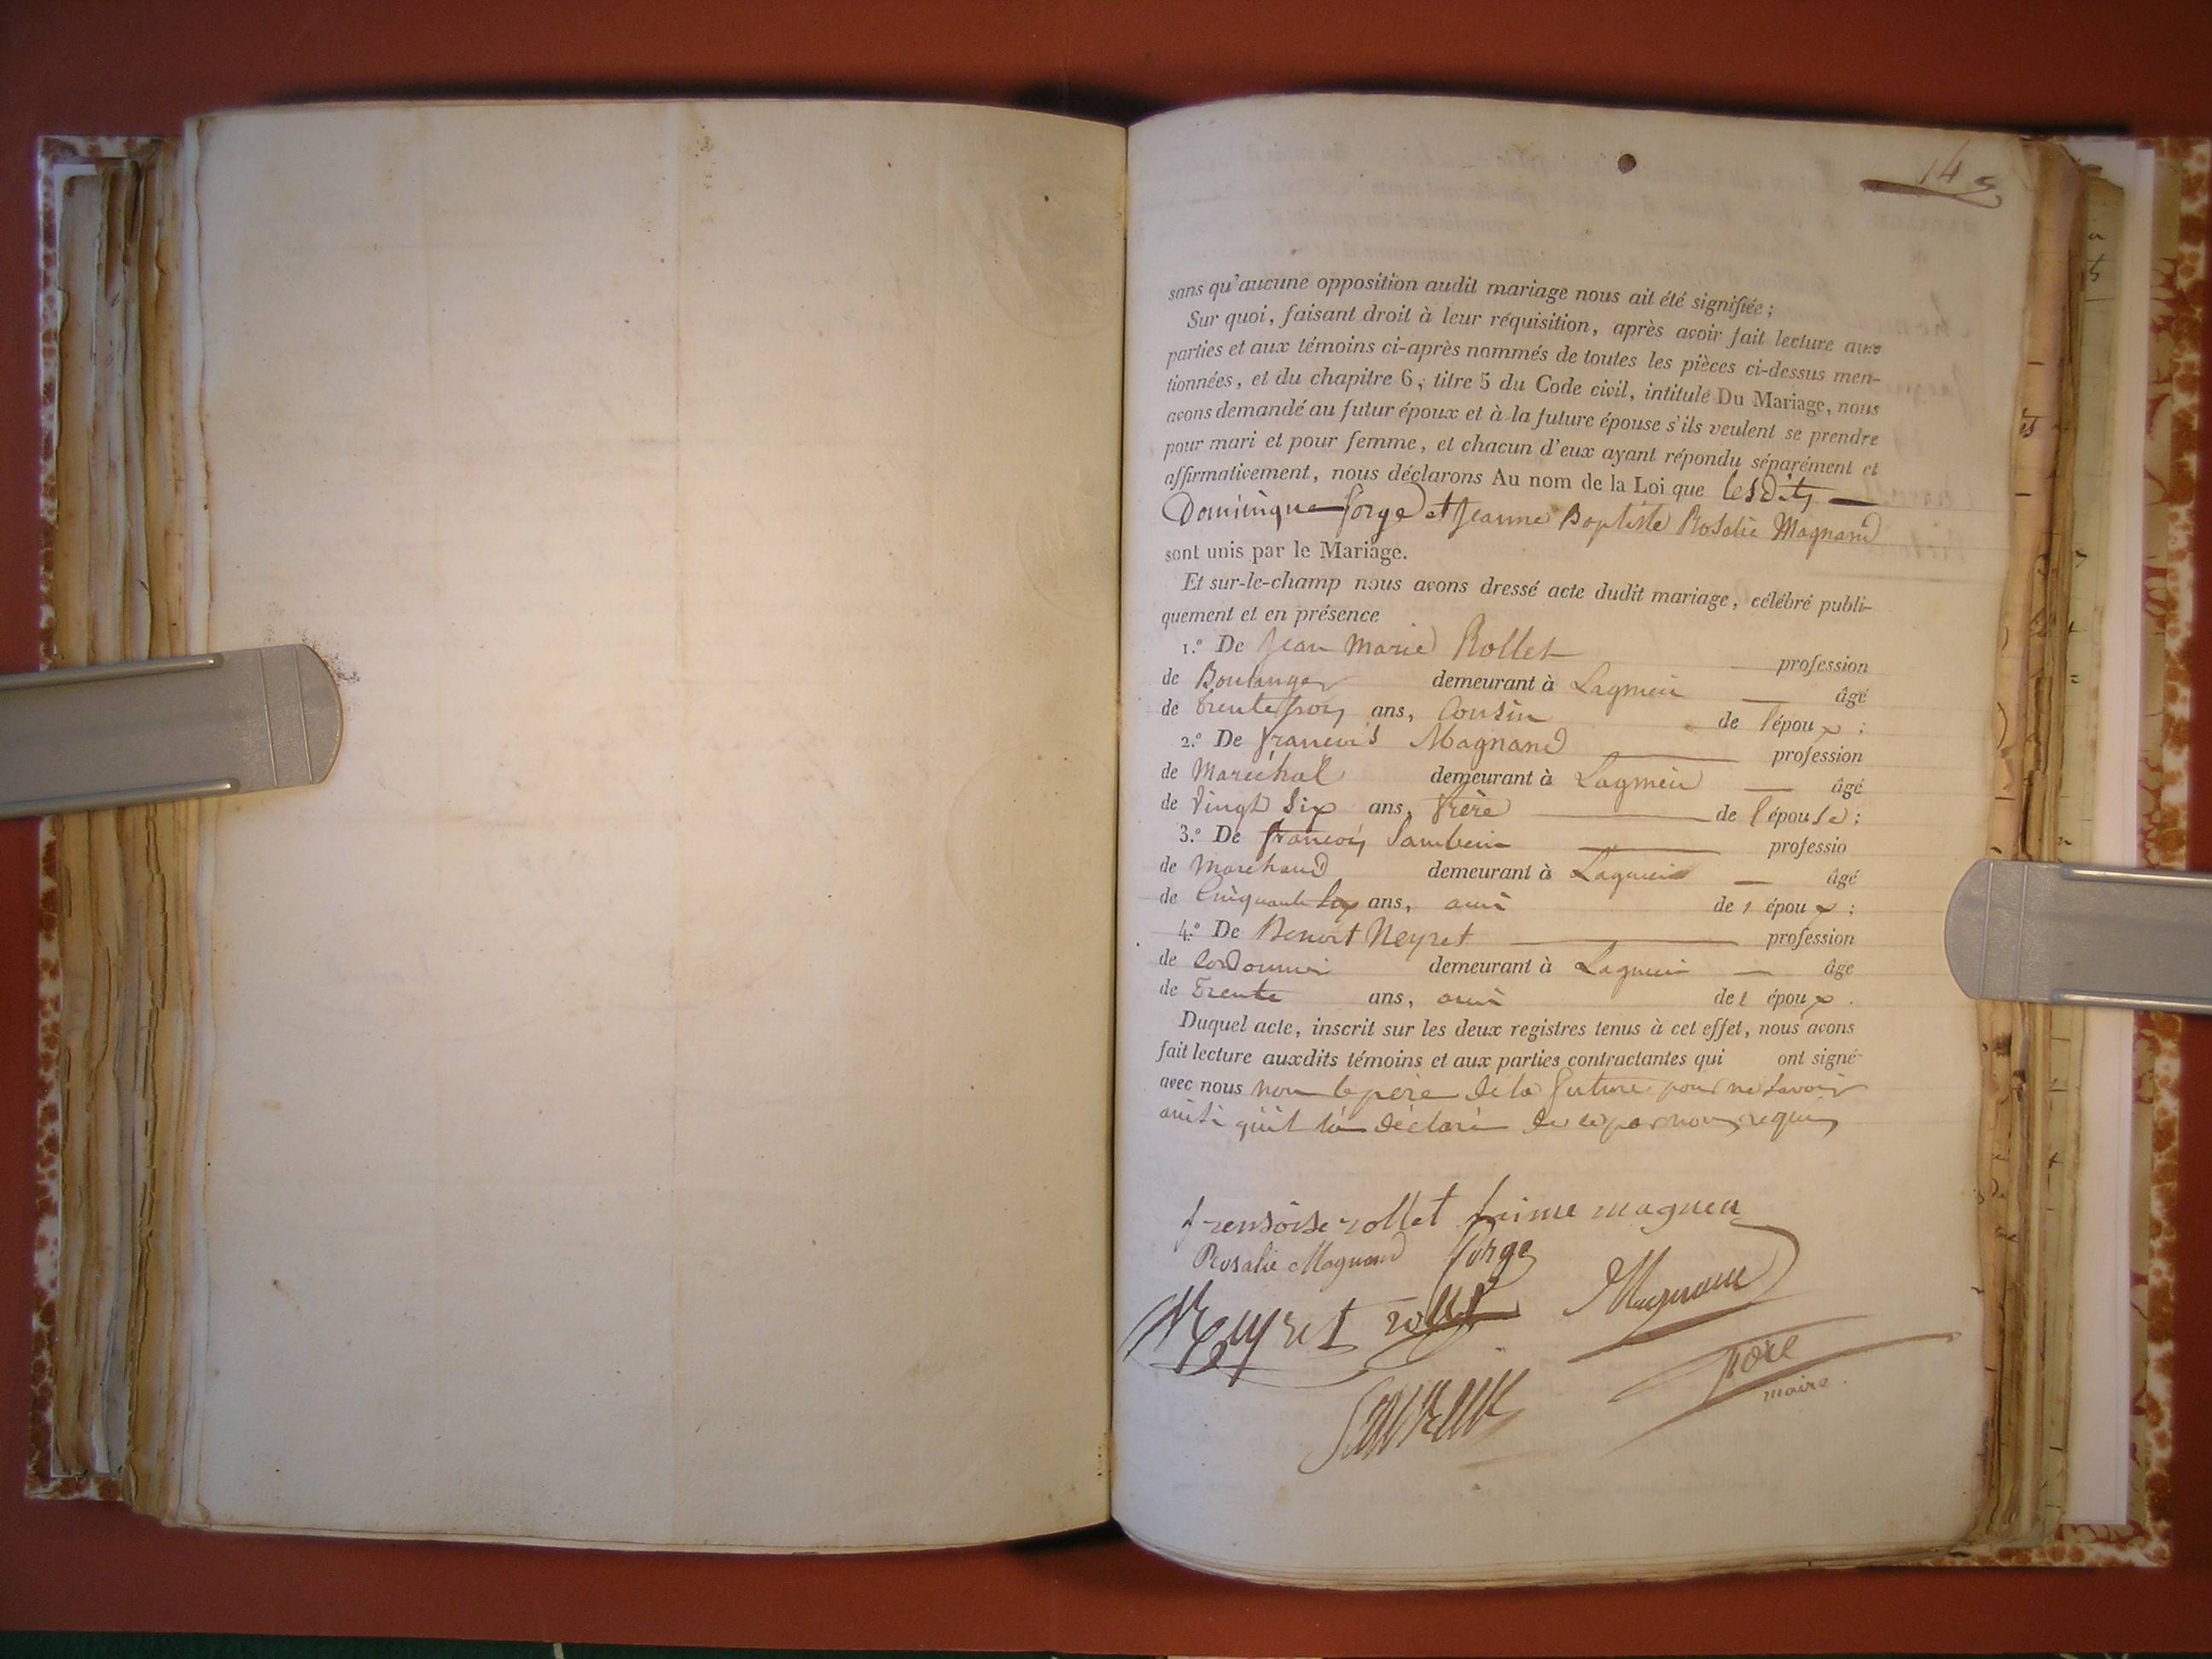 14
sans qu'aucune opposition audit mariage nous ait été signifiée;
Sur quoi, faisant droit à leur réquisition, après avoir fait lecture aux
parties et aux témoins ci-après nommés de toutes les pièces ci-dessus men-
tionnées, et du chapitre 6, titre 5 du Code civil, intitulé Du Mariage, nous
avons demandé au futur époux et à la future épouse s'ils veulent se prendre
pour mari et pour femme, et chacun d'eux ayant répondu séparément et
affirmativement, nous déclarons Au nom de la Loi que lesdits
Dominique forge et Jeanne Baptiste Rosalie Magnand
sont unis par le Mariage.
Et sur-le-champ nous avons dressé acte dudit mariage, célébré publi-
quement et en présence
1.º De Jean Marie Rollet profession
de Boulanger demeurant à Lagnieu âgé
de trente trois ans, Cousin de l'époux;
2.º De françois Magnand profession
de Maréchal demeurant à Lagnieu âgé
de vingt Six ans, frère de l'épouse;
3.º De françois profession
de Marchand demeurant à Lagnieu âgé
de Cinquante ans, ami de l époux;
4.º De Benoit Neyret profession
de Cordonnier demeurant à Lagnieu âgé
de trente ans, ami de l époux.
Duquel acte, inscrit sur les deux registres tenus à cet effet, nous avons
fait lecture auxdits témoins et aux parties contractantes qui ont signé
avec nous non le père de la future pour ne savoir
ainsi qu'il l'a déclaré de ce par nous requis
frensoise rollet faime magnen
Rosalie Magnand forge
Neyret rollet Magnand
maire.